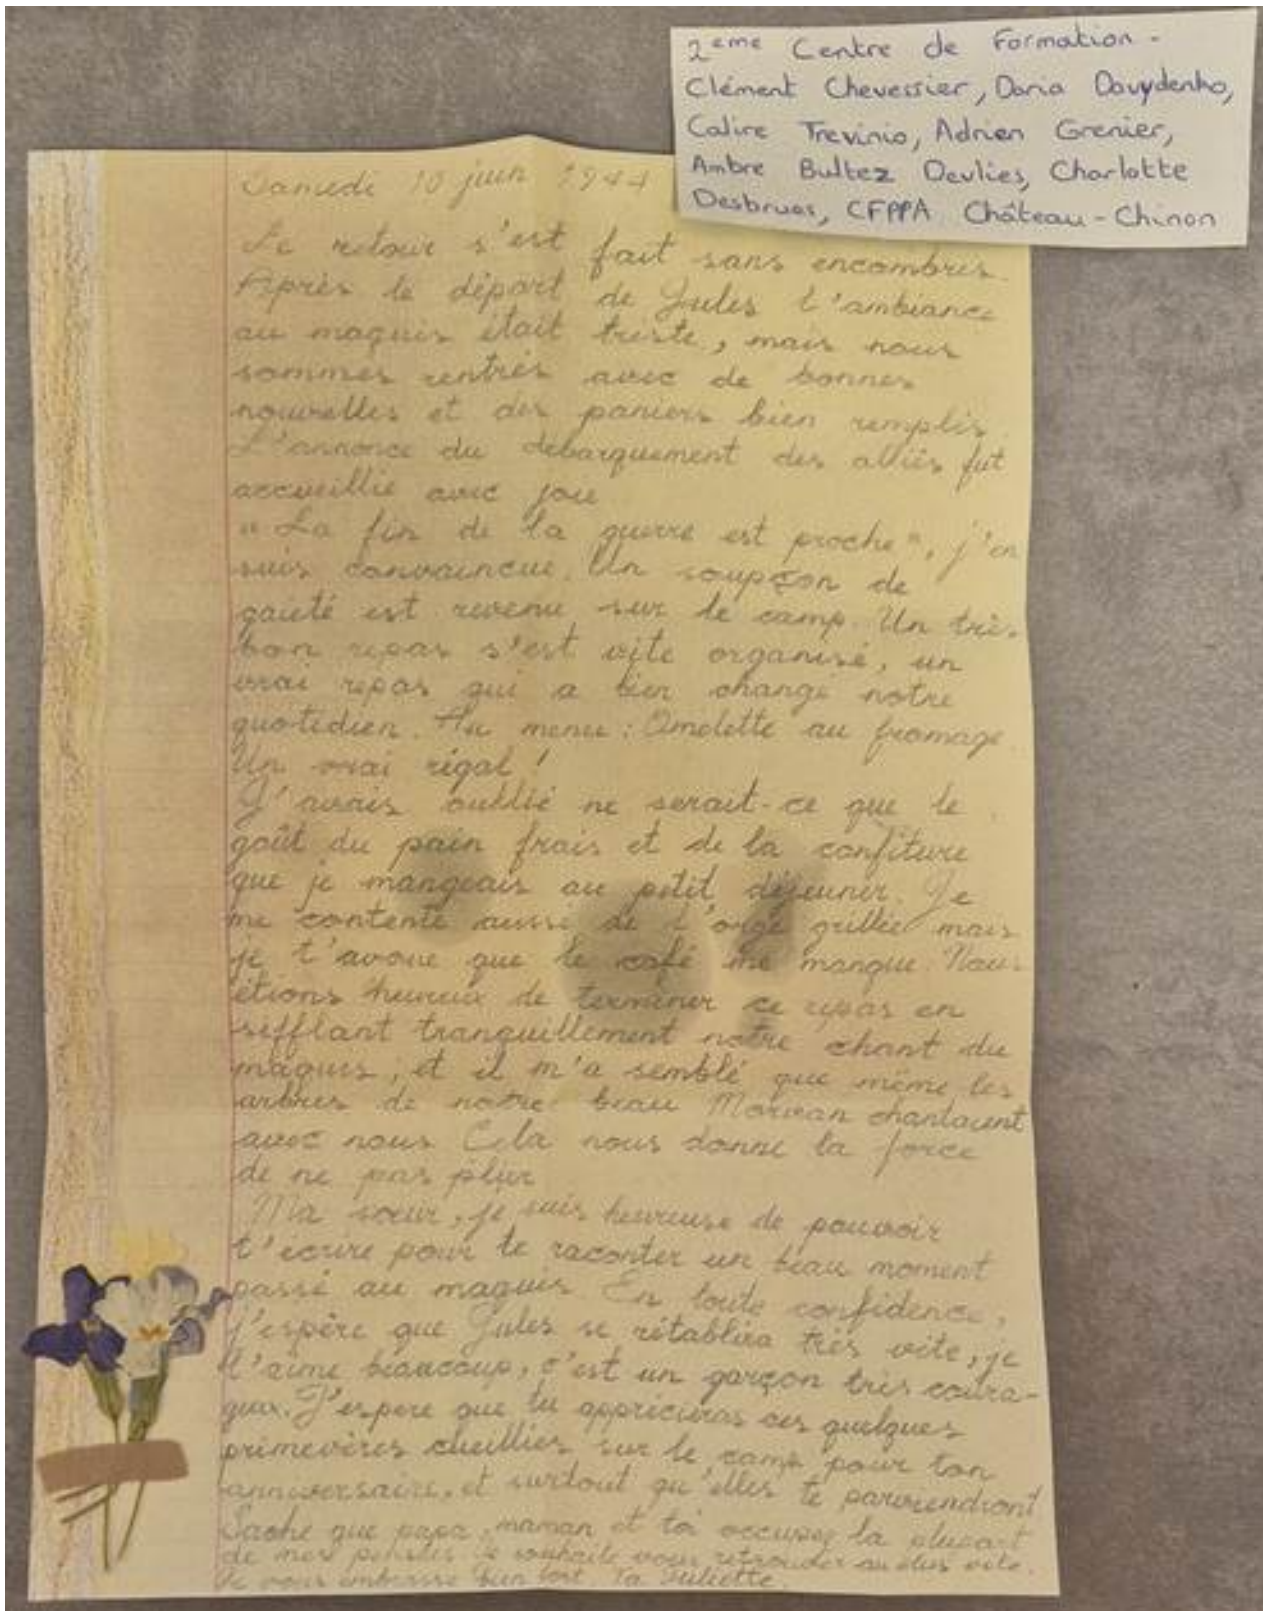 2eme Centre de Formation -
Clément Chevessier, Daria Davydenko,
Calire Trevinio, Adrien Grenier,
Ambre Bultez Devlies, Charlotte
Desbruos, CFPPA Château-Chinon
Samedi 10 juin 1944
Le retour s'est fait sans encombres.
Après le départ de Jules l'ambiance
au maquis était triste, mais nous
sommes rentrés avec de bonnes
nouvelles et des paniers bien remplis.
L'annonce du débarquement des alliés fut
accueillie avec joie
"La fin de la guerre est proche", j'en
suis convaincue. Un soupçon de
gaieté est revenu sur le camp. Un très
bon repas s'est vite organisé, un
vrai repas qui a bien changé notre
quotidien. Au menu : Omelette au fromage.
Un vrai régal !
J'avais oublié ne serait-ce que le
goût du pain frais et de la confiture
que je mangeais au petit déjeuner. Je
me contente aussi de l'orge grillée mais
je t'avoue que le café me manque. Nous
étions heureux de terminer ce repas en
sifflant tranquillement notre chant du
maquis, et il m'a semblé que même les
arbres de notre beau Morvan chantaient
avec nous. Cela nous donne la force
de ne pas plier
Ma soeur, je suis heureuse de pouvoir
t'écrire pour te raconter un beau moment
passé au maquis. En toute confidence,
j'espère que Jules se rétablira très vite, je
l'aime beaucoup, c'est un garçon très coura-
geux. J'espère que tu apprécieras ces quelques
primevères cueillies sur le camp pour ton
anniversaire, et surtout qu'elles te parviendront
Sache que papa, maman et toi occupez la plupart
de mes pensées. Je souhaite vous retrouver au plus vite.
Je vous embrasse bien fort. Ta Juliette.